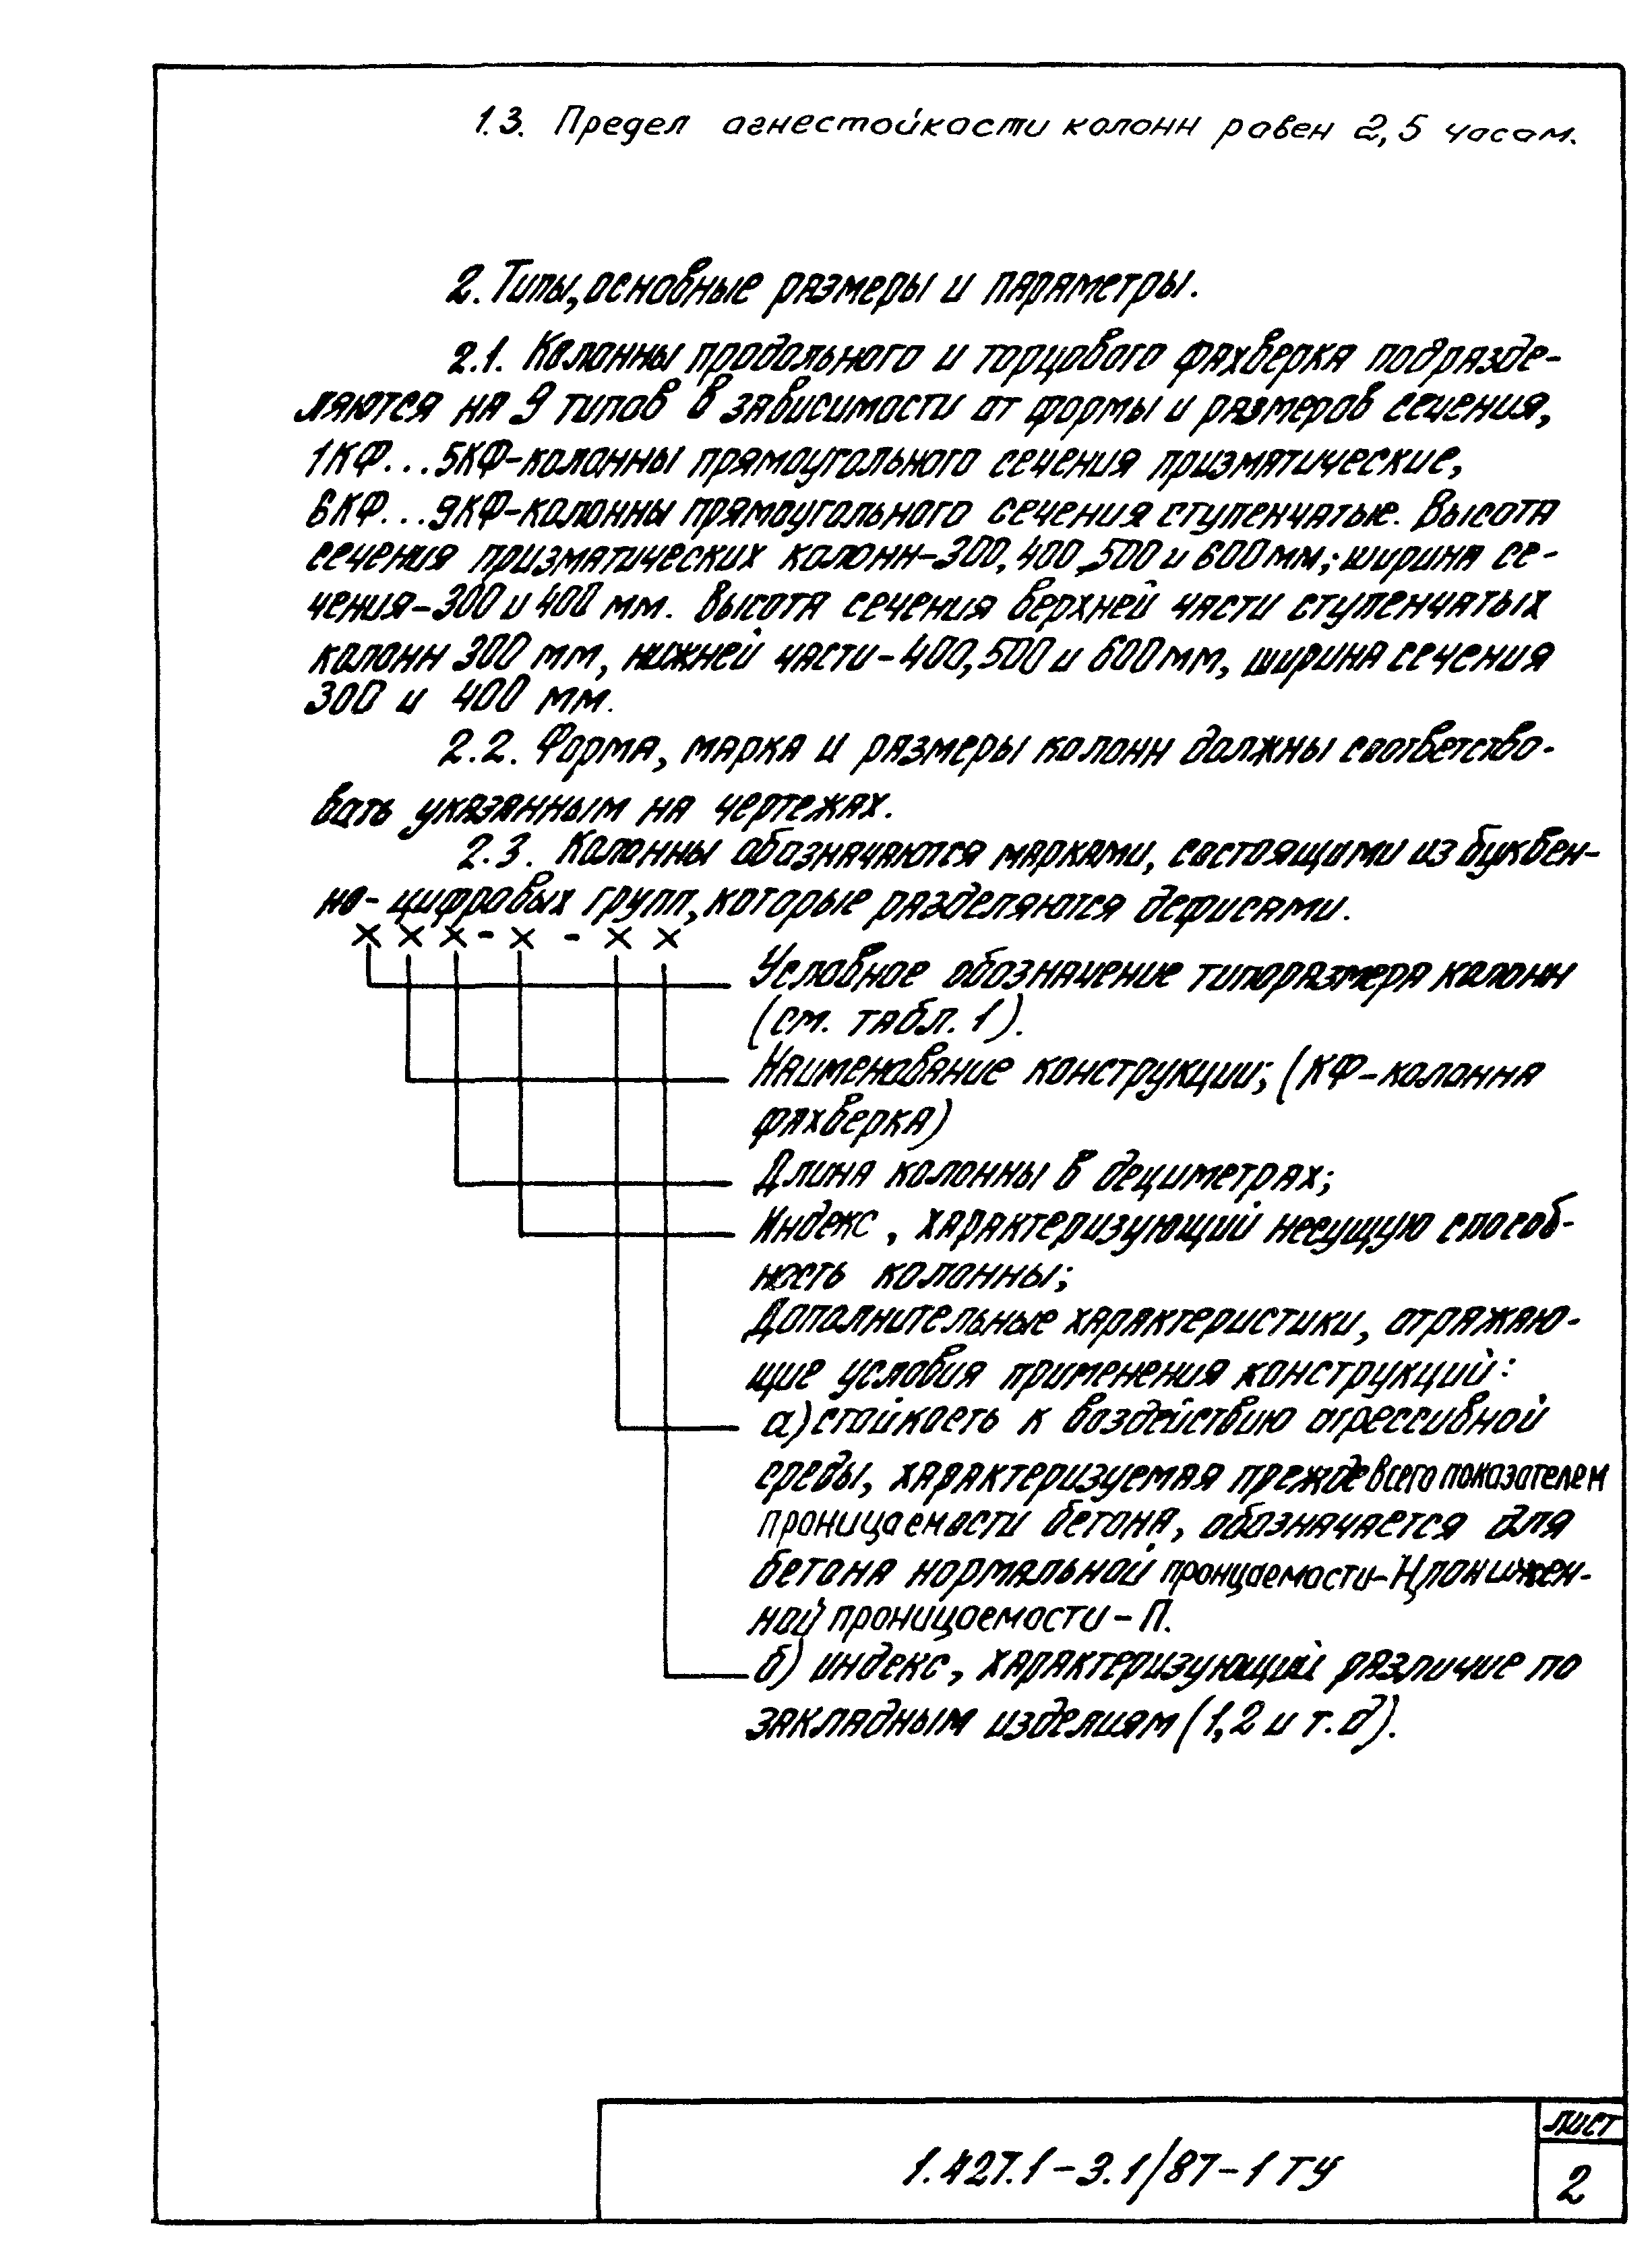 1.3. Предел агнестойкасти колонн равен 2,5 часам.
2. Типы, основные размеры и параметры.
2.1. Колонны продольного и торцового фахверка подразде-
ляются на 9 типов в зависимости от формы и размеров сечения,
1КФ...5КФ-колонны прямоугольного сечения призматические,
6КФ...9КФ-колонны прямоугольного сечения ступенчатые. Высота
сечения призматических колонн-300, 400, 500 и 600 мм; ширина се-
чения-300 и 400 мм. Высота сечения верхней части ступенчатых
колонн 300 мм, нижней части-400, 500 и 600 мм, ширина сечения
300 и 400 мм.
2.2. Форма, марка и размеры колонн должны соответство-
вать указанным на чертежах.
2.3. Колонны обозначаются марками, состоящими из буквен-
но-цифровых групп, которые разделяются дефисами.
× × × - × - × ×
Условное обозначение типоразмера колонн
(см. табл. 1).
Наименование конструкции; (КФ-колонна
фахверка)
Длина колонны в дециметрах;
Индекс, характеризующий несущую способ-
ность колонны;
Дополнительные характеристики, отражаю-
щие условия применения конструкций:
а) стойкость к воздействию агрессивной
среды, характеризуемая прежде всего показателем
проницаемости бетона, обозначается для
бетона нормальной пронцаемости-Н, понижен-
ной проницаемости-П.
б) индекс, характеризующий различие по
закладным изделиям (1,2 и т.д).
1.427.1-3.1/87-1ТУ
лист
2